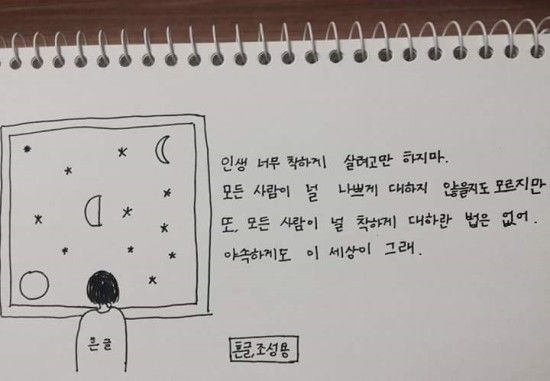 인생 너무 착하게 살려고만 하지마.
모든 사람이 널 나쁘게 대하지 않을지도 모르지만
또, 모든 사람이 널 착하게 대하란 법은 없어.
야속하게도 이 세상이 그래.
흔글
흔글, 조성용